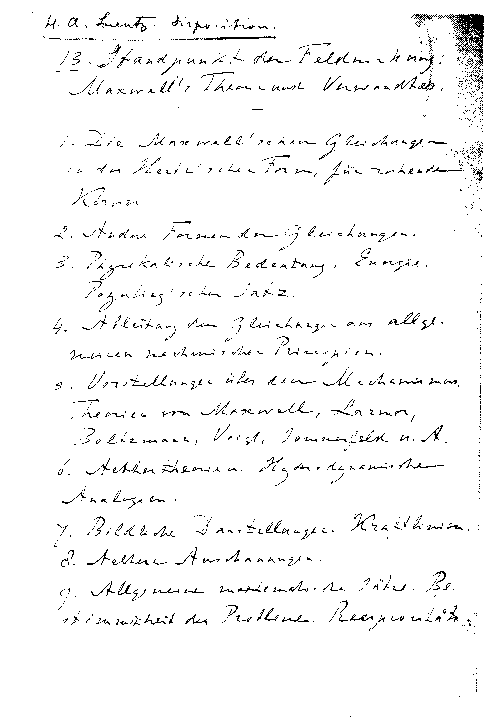 H. A. Lorentz. Disposition.
13. Standpunkt der Feldwirkung:
Maxwell's Theorie und Verwandtes.
1. Die Maxwell'schen Gleichungen
in der Hertz'schen Form, für ruhende
Körper
2. Andere Formen der Gleichungen.
3. Physikalische Bedeutung. Energie.
Poyntingischer Satz.
4. Ableitung der Gleichungen aus allge-
meinen mechanischen Principien.
5. Vorstellungen über den Mechanismus.
Theorien von Maxwell, Larmor,
Boltzmann, Voigt, Sommerfeld u. A.
6. Aethertheorien. Hydrodynamische
Analogien.
7. Bildliche Darstellungen. Kraftlinien.
8. Aeltere Anschauungen.
9. Allgemeine mathematische Sätze. Be-
stimmtheit der Probleme. Reciprocitäts-